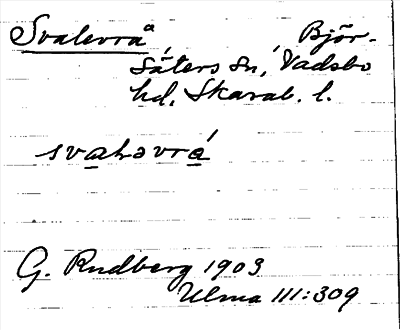 Svalevrå Björ-
säters sn, Vadsbo
hd, Skarab. l.
svahəvrá
G. Rudberg 1903
Ulma 111:309